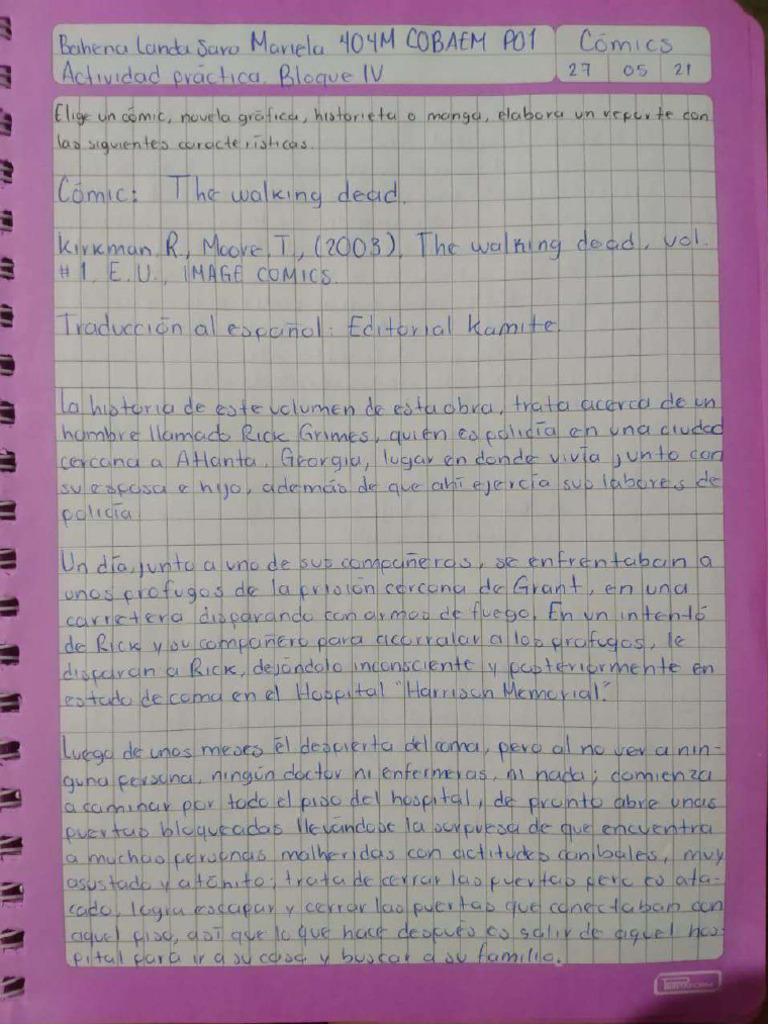 Bahena Landa Sara Mariela 404M COBAEM P01
Cómics
Actividad práctica. Bloque IV
27 05 21
Elige un cómic, novela gráfica, historieta o manga, elabora un reporte con
las siguientes características.
Cómic: The walking dead.
Kirkman, R., Moore, T., (2003), The walking dead, vol.
#1, E.U., IMAGE COMICS.
Traducción al español: Editorial Kamite.
La historia de este volumen de esta obra, trata acerca de un
hombre llamado Rick Grimes, quién es policía en una ciudad
cercana a Atlanta, Georgia, lugar en donde vivía junto con
su esposa e hijo, además de que ahí ejercía sus labores de
policía
Un día, junto a uno de sus compañeros, se enfrentaban a
unos profugos de la prisión cercana de Grant, en una
carretera disparando con armas de fuego. En un intentó
de Rick y su compañero para acorralar a los profugos, le
disparan a Rick, dejándolo inconsciente y posteriormente en
estado de coma en el Hospital "Harrison Memorial."
Luego de unos meses él despierta del coma, pero al no ver a nin-
guna persona, ningún doctor ni enfermeras, ni nada; comienza
a caminar por todo el piso del hospital, de pronto abre unas
puertas bloqueadas llevándose la sorpresa de que encuentra
a muchas personas malheridas con actitudes canibales, muy
asustado y atónito; trata de cerrar las puertas pero es ata-
cado, logra escapar y cerrar las puertas que conectaban con
aquel piso, así que lo que hace después es salir de aquel hos-
pital para ir a su casa y buscar a su familia.